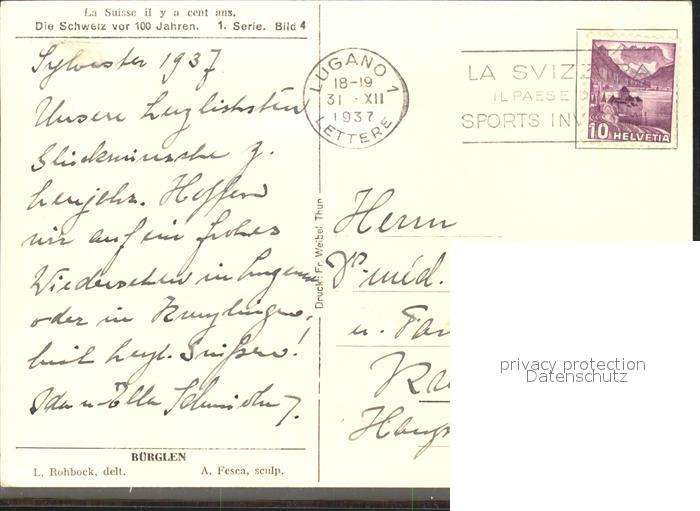 La Suisse il y a cent ans.
Die Schweiz vor 100 Jahren. 1. Serie. Bild 4
Sylvester 1937
Unsere herzlichsten
Glückwünsche z.
neujahr. Hoffen
wir auf ein frohes
Wiedersehen in Lugano
oder in Kreuzlingen.
mit herzl. Grüssen!
Ida u. Ella
BÜRGLEN
L. Rohbock, delt. A. Fesca, sculp.
Druck: Fr. Weibel, Thun
LUGANO 1
18-19
31 · XII
1937
LETTERE
LA SVIZZERA
IL PAESE D
SPORTS INV
10 HELVETIA
Herrn
Dr méd.
u. Fam
Kreu
Haup
privacy protection
Datenschutz